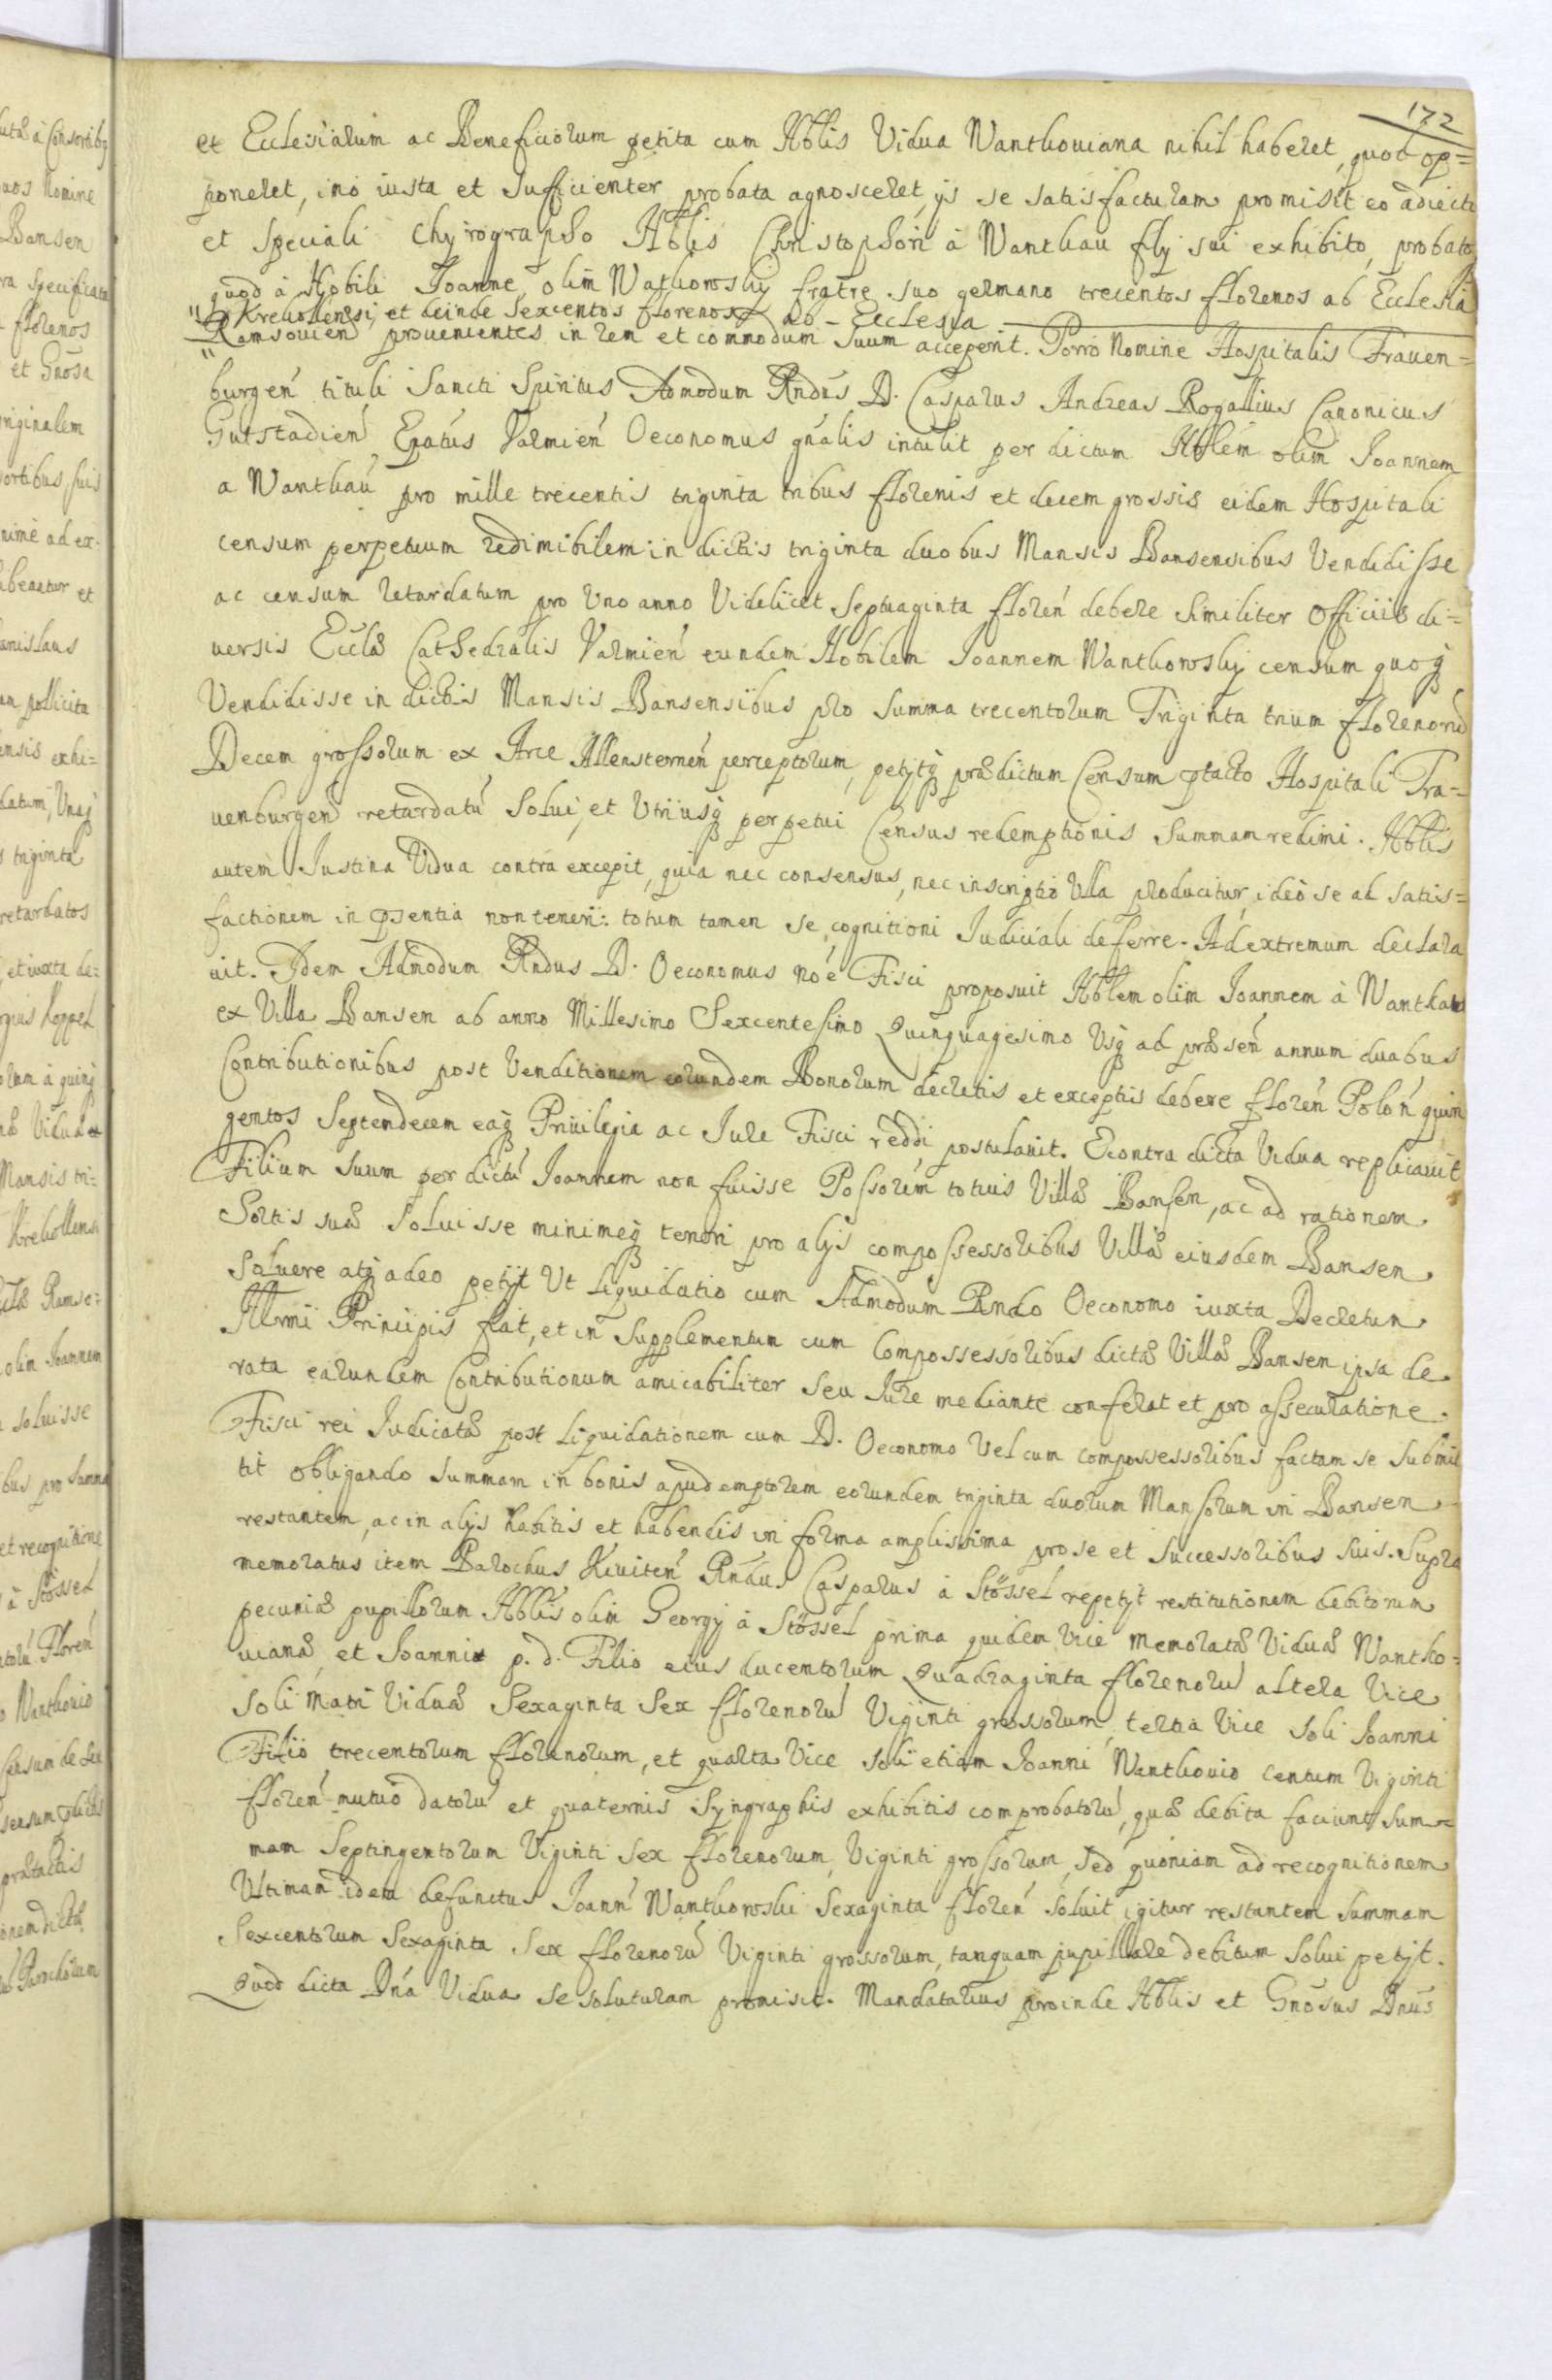 172
et Ecclesiarum ac Beneficiorum petita cum Nblis Vidua Wanthouiana nihil haberet, quod op=
poneret, imò iusta et sufficienter probata agnosceret, ijs se satisfacturam promisit eo adiecto
et speciali Chyrographo Nblis Christophori à Wanthau flij sui exhibito, probato
quod à Nobili Joanne olim Wathowskij fratre suo germano trecentos florenos ab Ecclesia
Krekollensi, et deinde sexcentos florenos ab Ecclesia
Ramsouien prouenientes in rem et commodum suum acceperit. Porrò Nomine Hospitalis Frauen=
burgen tituli Sancti Spiritus Admodum Rndus D. Casparus Andreas Rogallius Canonicus
Gutstadien, Epatus Varmien Oeconomus gnalis intulit per dictum Nblem olim Joannem
a Wanthau pro mille trecentis triginta tribus florenis et decem grossis eidem Hospitali
censum perpetuum redimibilem in dictis triginta duobus Mansis Bansensibus Vendidisse
ac censum retardatum pro Uno anno Videlicet Septuaginta floren debere similiter Officiis di=
uersis Eccla Cathedralis Varmien eundem Nobilem Joannem Wanthowskij censum quoq
Vendidisse in dictis Mansis Bansensibus pro summa trecentorum Triginta trium florenoru
Decem grossorum ex Arce Allensteinen perceptorum, petijtq prædictum Censum ptacto Hospitali Fra=
uenburgen retardatu solui, et Utriusq perpetui Census redemptionis summam redimi. Nblis
autem Iustina Vidua contra excepit, quia nec consensus, nec inscriptio Ulla producitur, ideò se ad satis=
factionem in psentia non teneri: totum tamen se cognitioni Judiciali deferre. Ad extremum declara
uit. Idem Admodum Rndus D. Oeconomus noe Fisci proposuit Nblem olim Joannem à Wanthau
ex Villa Bansen ab anno Millesimo Sexcentesimo Quinquagesimo Usq ad præsen annum duabus
Contributionibus post Venditionem eorundem Bonorum decretis et exceptis debere floren Polon quin
gentos Septendecem eaq Priuilegia ac Iure Fisci reddi postulauit. Econtra dicta Vidua replicauit
Filium suum per dictu Joannem non fuisse Possorem totius Villæ Bansen, ac ad rationem
Sortis suæ soluisse minimeq teneri pro alijs compossessoribus Villæ eiusdem Bansen
soluere atq adeo petijt Ut liquidatio cum Admodum Rndo Oeconomo iuxta Decretum
Illrmi Principis fiat, et in supplementum cum Compossessoribus dictæ Villæ Bansen ipsa de
rata earundem Contributionum amicabiliter seu Iure mediante conferat et pro assecuratione
Fisci rei Iudicatæ post liquidationem cum D. Oeconomo Vel cum compossessoribus factam se submit
tit obligando summam in bonis apud emptorem eorundem triginta duorum Mansorum in Bansen
restantem, ac in alijs habitis et habendis in forma amplissima pro se et successoribus suis. Supra
memoratus item Parochus Kiuiten Rndus Casparus à Stössel repetijt restitutionem debitorum
pecuniæ pupillorum Nblis olim Georgij à Stössel prima quidem Vice memoratæ Viduæ Wantho=
uianæ, et Joanni p. d. Filio eius ducentorum Quadraginta florenoru altera Vice
soli Matri Viduæ Sexaginta Sex florenoru Viginti grossorum, tertia Vice soli Joanni
Filio trecentorum florenorum, et quarta Vice soli etiam Joanni Wanthouio Centum Viginti
floren mutuò datoru et quaternis Syngraphis exhibitis comprobatoru, quæ debita faciunt sum=
mam Septingentorum Viginti Sex florenorum, Viginti grossorum, sed quoniam ad recognitionem
Ultimam idem defunctus Joann Wanthowski sexaginta floren soluit igitur restantem summam
Sexcentorum Sexaginta Sex florenoru Viginti grossorum, tanquam pupillare debitum solui petijt.
Quod dicta Dna Vidua se soluturam promisit. Mandatarius proinde Nblis et Gnosus Dnus